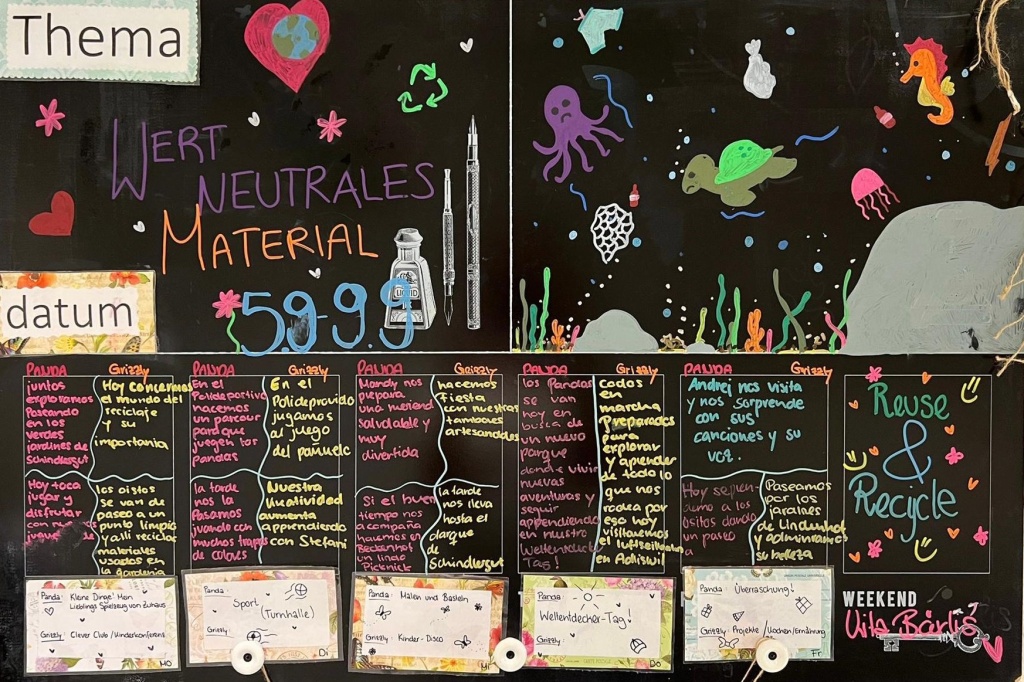 Thema
WERT
NEUTRALES
MATERIAL
LIQUID
datum
5.9-9.9
PANDA
Grizzly
juntos
exploramos
Paseando
en los
verdes
jardines de
Schindlergut
Hoy concermos
el mundo del
reciclaje
y su
importania
Hoy toca
jugar y
disfrutar
los osistos
se van de
paseo a un
punto limpio
y alli reciclar
materiales
usados en
la gardenia
PANDA
Grizzly
En el
Polideportivo
hacemos
un parcour
para que
juegen los
pandas
En el
Polideprovido
jugamos
al juego
del pañuelo
la tarde
nos la
Pasamos
jugando con
muchos trapos
de colores
Nuestra
kreatividad
aumenta
apprendiendo
con Stefani
PANDA
Grizzly
Mandy nos
prepara
una meriend
saludable y
muy
divertida
hacemos
fiesta
con nuestros
tambores
artesanales
Si el buen
tiempo nos
acompaña
hacemos en
Beckenhof
un lindo
Picknick
la tarde
nos lleva
hasta el
parque
de
Schindlergut
PANDA
Grizzly
los Pandas
se van
hoy en
busca de
un nuevo
parque
donde vivir
nuevas
aventuras y
seguir
apprendiendo
en nuestro
Wellentdecker
Tag!
todos
en
marcha
Preparados
para
explorar
y aprender
de todo lo
que nos
rodea por
eso hoy
visitaremos
el luftseilbahn
en Adliswil
PANDA
Grizzly
Andrej nos visita
y nos sorprende
con sus
canciones y su
voz.
ositos dando
un paseo
a
Paseamos
por los
jardines
de Lindenhof
y adminramos
su belleza
Reuse
&
Recycle
Panda: Kleine Dinge! Mein
Lieblings Spielzeug von Zuhaus
Grizzly: Clever Club / Kinderkonferenz
Mo
Panda:
Sport
(Turnhalle)
Grizzly:
Di
Panda: Malen und Basteln
Grizzly: Kinder-Disco
Mi
Panda:
Wellentdecher-Tag!
Grizzly:
Do
Panda: Überraschung!
Grizzly: Projekte /Kochen/Ernährung
Fr
WEEKEND